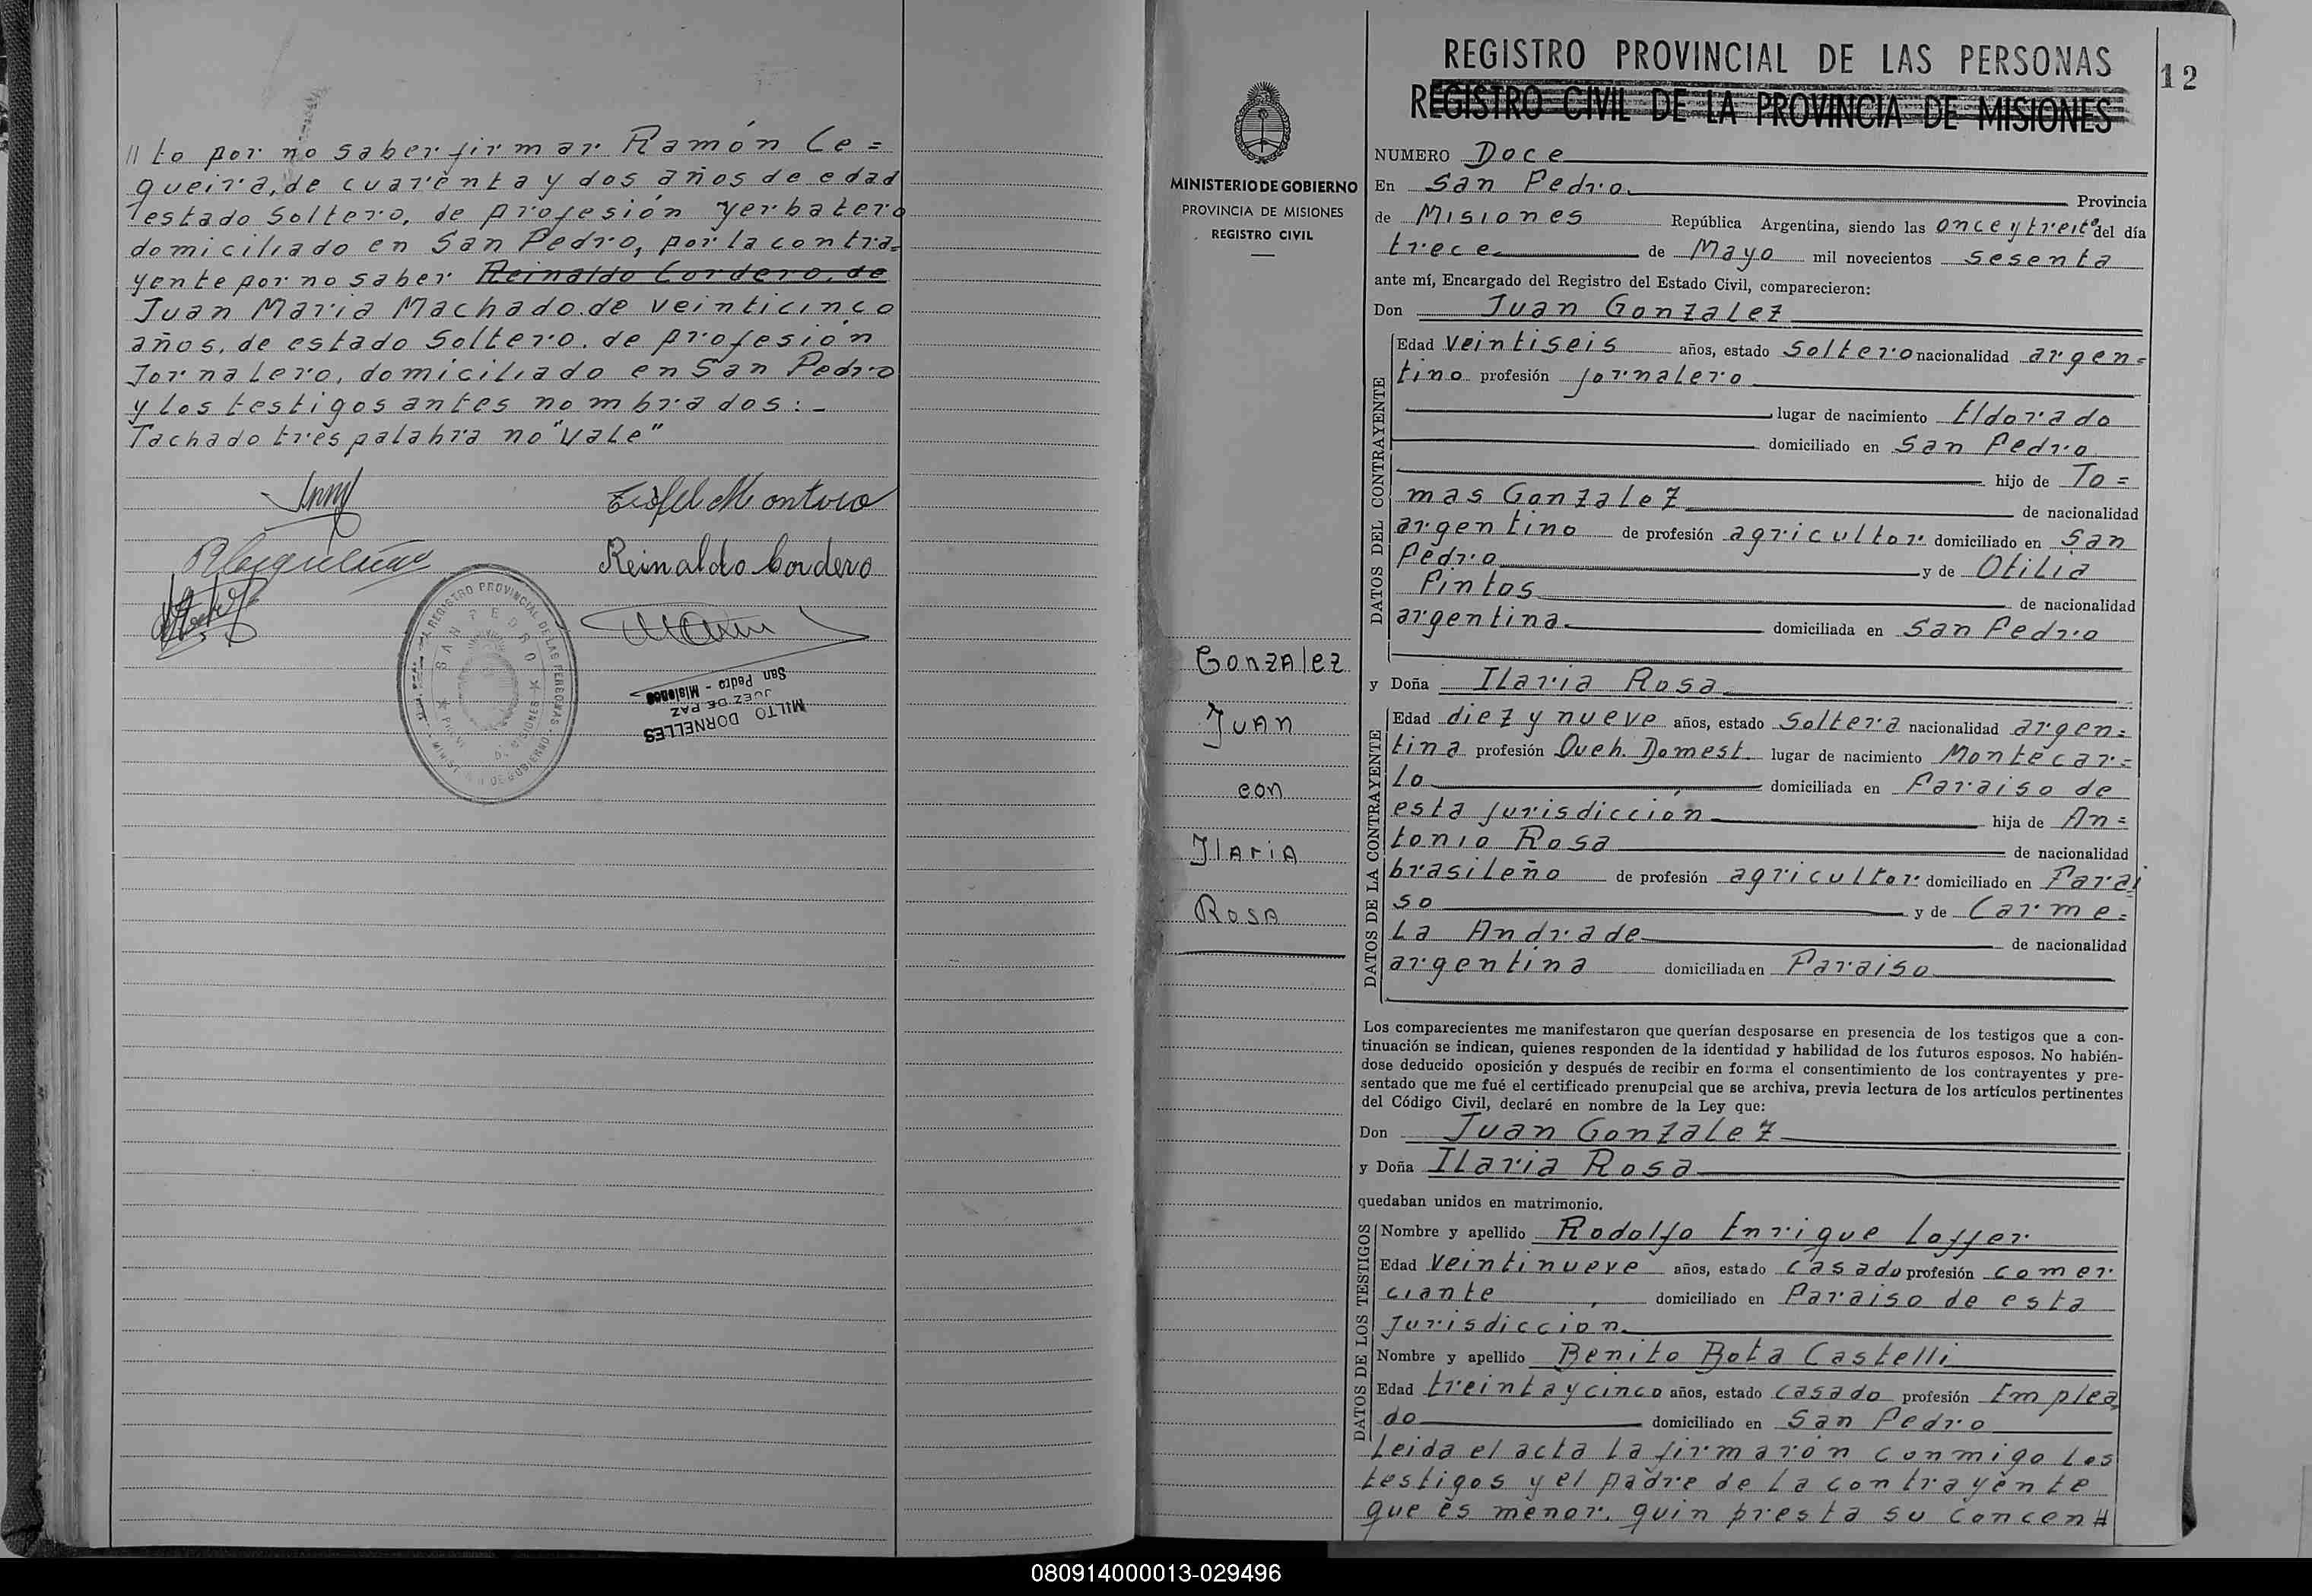 // to por no saber firmar Ramón Ce=
queira, de cuarenta y dos años de edad
estado soltero, de profesión yerbatero
domiciliado en San Pedro, por la contra=
yente por no saber Reinaldo Cordero, de
Juan Maria Machado de veinticinco
años, de estado soltero, de profesión
Jornalero, domiciliado en San Pedro
y los testigos antes nombrados:-
Tachado tres palabra no "vale"
Reinaldo Cordero
REGISTRO PROVINCIAL DE LAS PERSONAS
SAN PEDRO
MILTO DORNELLES
JUEZ DE PAZ
San Pedro - Misiones
MINISTERIO DE GOBIERNO
PROVINCIA DE MISIONES
REGISTRO CIVIL
Gonzalez
Juan
con
Ilaria
Rosa
REGISTRO PROVINCIAL DE LAS PERSONAS
12
REGISTRO CIVIL DE LA PROVINCIA DE MISIONES
NUMERO Doce
En San Pedro Provincia
de Misiones República Argentina, siendo las once y treita del día
trece de Mayo mil novecientos sesenta
ante mí, Encargado del Registro del Estado Civil, comparecieron:
Don Juan Gonzalez
DATOS DEL CONTRAYENTE
Edad veintiseis años, estado soltero nacionalidad argen=
tino profesión jornalero
lugar de nacimiento Eldorado
domiciliado en San Pedro
hijo de To=
mas Gonzalez de nacionalidad
argentino de profesión agricultor domiciliado en San
Pedro y de Otilia
Pintos de nacionalidad
argentina domiciliada en San Pedro
y Doña Ilaria Rosa
DATOS DE LA CONTRAYENTE
Edad diez y nueve años, estado soltera nacionalidad argen=
tina profesión Queh. Domest. lugar de nacimiento Montecar=
lo domiciliada en Paraiso de
esta jurisdicción hija de An=
tonio Rosa de nacionalidad
brasileño de profesión agricultor domiciliado en Parai
so y de Carme=
la Andrade de nacionalidad
argentina domiciliada en Paraiso
Los comparecientes me manifestaron que querían desposarse en presencia de los testigos que a con-
tinuación se indican, quienes responden de la identidad y habilidad de los futuros esposos. No habién-
dose deducido oposición y después de recibir en forma el consentimiento de los contrayentes y pre-
sentado que me fué el certificado prenupcial que se archiva, previa lectura de los artículos pertinentes
del Código Civil, declaré en nombre de la Ley que:
Don Juan Gonzalez
y Doña Ilaria Rosa
quedaban unidos en matrimonio.
DATOS DE LOS TESTIGOS
Nombre y apellido Rodolfo Enrique Loffer
Edad veintinueve años, estado casado profesión comer
ciante domiciliado en Paraiso de esta
jurisdiccion
Nombre y apellido Benito Bota Castelli
Edad treinta y cinco años, estado casado profesión Emplea
do domiciliado en San Pedro
Leida el acta la firmaron conmigo los
testigos y el padre de la contrayente
que es menor, quin presta su concen//
080914000013-029496